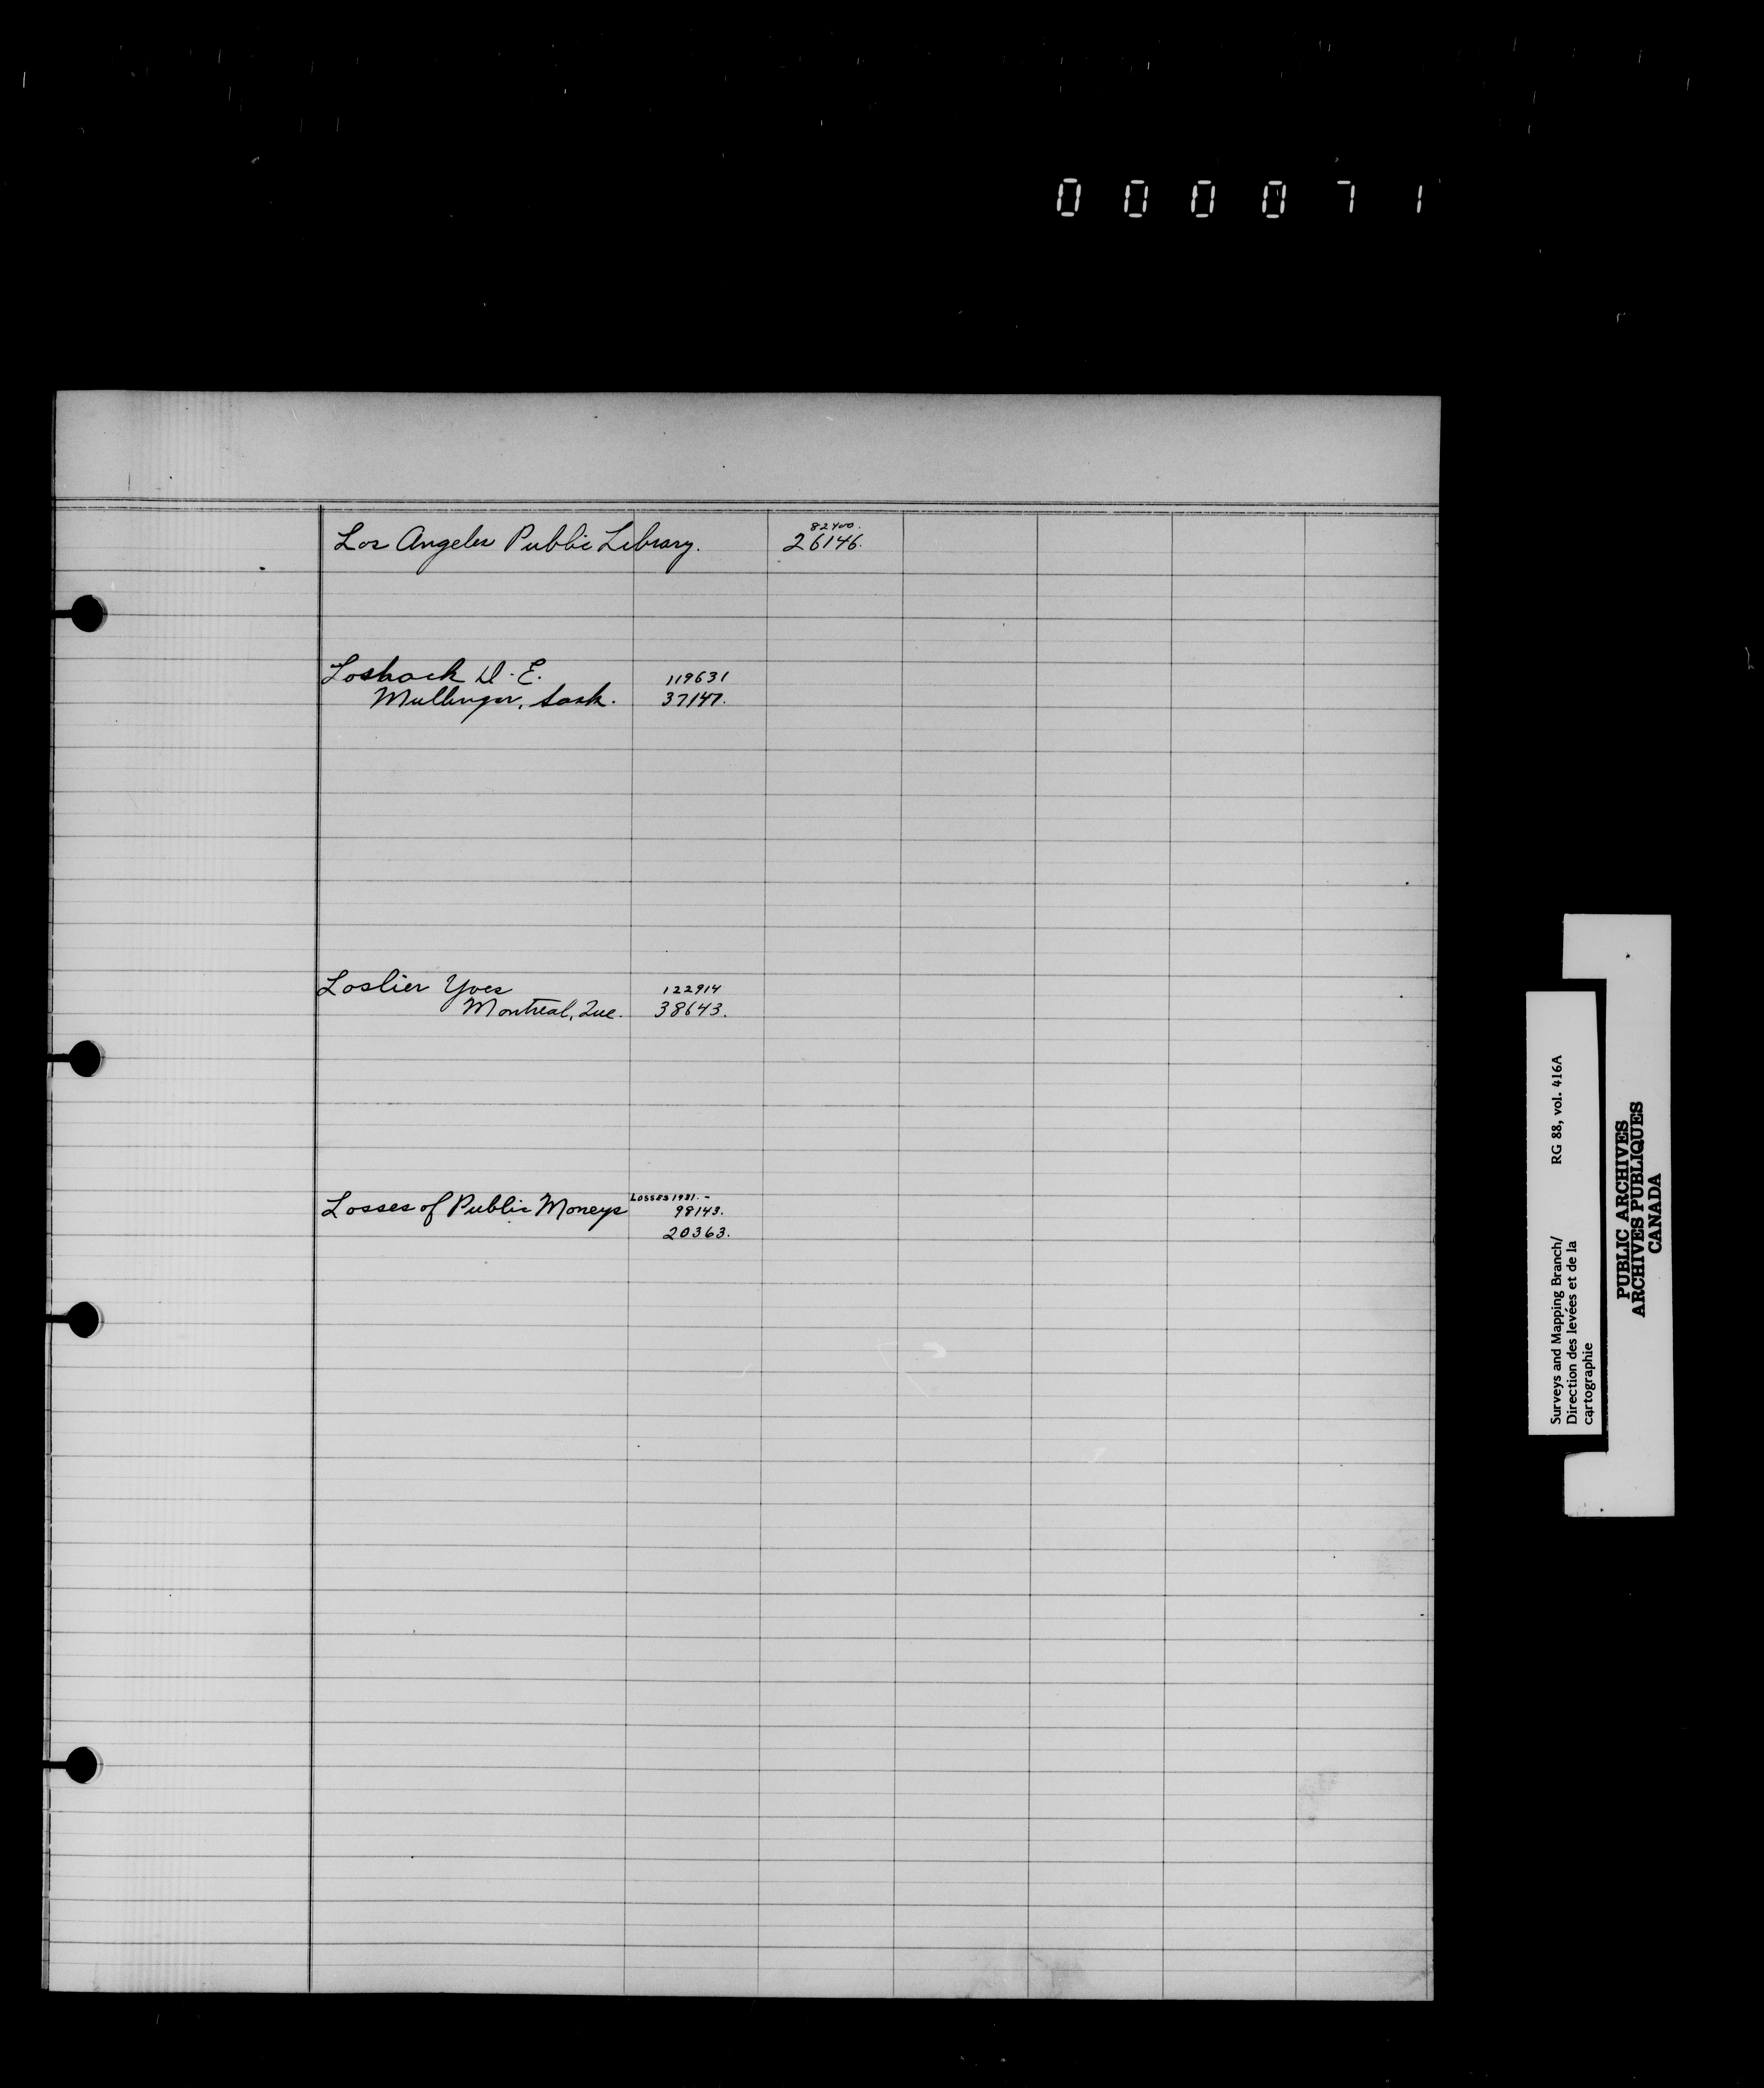 0 0 0 0 7 1
Los Angeles Public Library.
82400.
26146.
Loshack D. E. 119631
Mullinger, Sask. 37147.
Loslier Yves 122914
Montreal, Que. 38643.
Losses of Public Moneys
LOSSES 1931.-
98143.
20363.
Surveys and Mapping Branch/ RG 88, vol. 416A
Direction des levées et de la
cartographie
PUBLIC ARCHIVES
ARCHIVES PUBLIQUES
CANADA